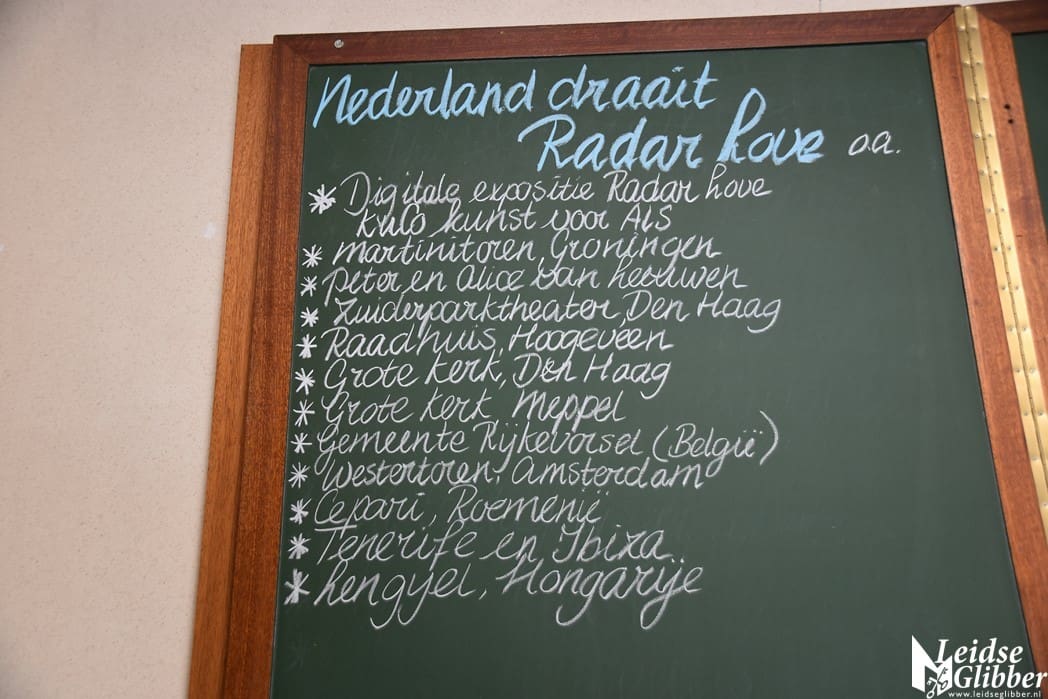 Nederland draait
Radar Love o.a.
* Digitale expositie Radar Love
KuCo kunst voor ALS
* Martinitoren, Groningen
* Peter en Alice van Leeuwen
* Zuiderparktheater, Den Haag
* Raadhuis, Hoogeveen
* Grote Kerk, Den Haag
* Grote Kerk, Meppel
* Gemeente Rijkevorsel (België)
* Westertoren, Amsterdam
* Cepari, Roemenië
* Tenerife en Ibiza
* Lengyel, Hongarije
Leidse
Glibber
www.leidseglibber.nl